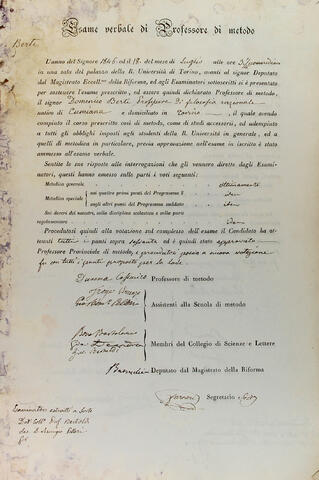 Esame verbale di Professore di metodo
Berti
L'anno del Signore 1846 ed il 18. del mese di Luglio alle ore 3 pomeridiane
in una sala del palazzo della R. Università di Torino, avanti al signor Deputato
del Magistrato Eccell.mo della Riforma, ed agli Esaminatori sottoscritti si è presentato
per sostenere l'esame prescritto, ed essere quindi dichiarato Professore di metodo,
il signor Domenico Berti Professore di filosofia razionale
nativo di Cumiana e domiciliato in Torino, il quale avendo
compiuto il corso prescritto così di metodo, come di studi accessorii, ed adempiuto
a tutti gli obblighi imposti agli studenti della R. Università in generale, ed a
quelli di metodica in particolare, previa approvazione nell'esame in iscritto è stato
ammesso all'esame verbale.
Sentite le sue risposte alle interrogazioni che gli vennero dirette dagli Esaminatori,
questi hanno emesso sulle parti i voti seguenti:
Metodica generale, ottimamente
Metodica speciale sui quattro primi punti del Programma idem
sugli altri punti del Programma suddetto idem
Sui doveri dei maestri, sulla disciplina scolastica e sulla parte
regolamentare idem
Procedutosi quindi alla votazione sul complesso dell'esame il Candidato ha ottenuti
tutti i punti sopra sessanta ed è quindi stato approvato
Professore Provinciale di metodo, e procedutosi poscia a nuova votazione
fu con tutti i punti proposto per la lode.
Professore di metodo
Assistenti alla Scuola di metodo
Membri del Collegio di Scienze e Lettere
Deputato dal Magistrato della Riforma
Segretario
Esaminatori estratti a sorte